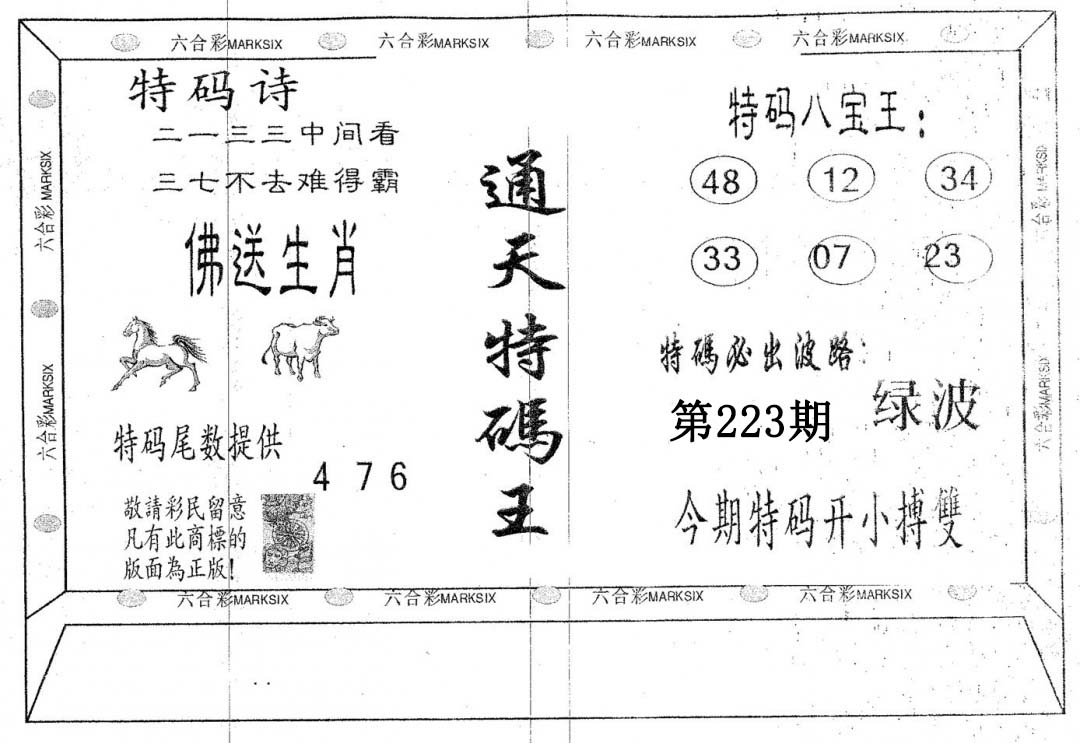 六合彩MARKSIX 六合彩MARKSIX 六合彩MARKSIX 六合彩MARKSIX
六合彩 MARKSIX
六合彩MARKSIX
特码诗
二一三三中间看
三七不去难得霸
佛送生肖
特码尾数提供
4 7 6
敬請彩民留意
凡有此商標的
版面為正版!
通天特碼王
特码八宝王:
48 12 34
33 07 23
特碼必出波路:
第223期 绿波
今期特码开小搏雙
六合彩 MARKSIX
六合彩MARKSIX
六合彩MARKSIX 六合彩MARKSIX 六合彩MARKSIX 六合彩MARKSIX